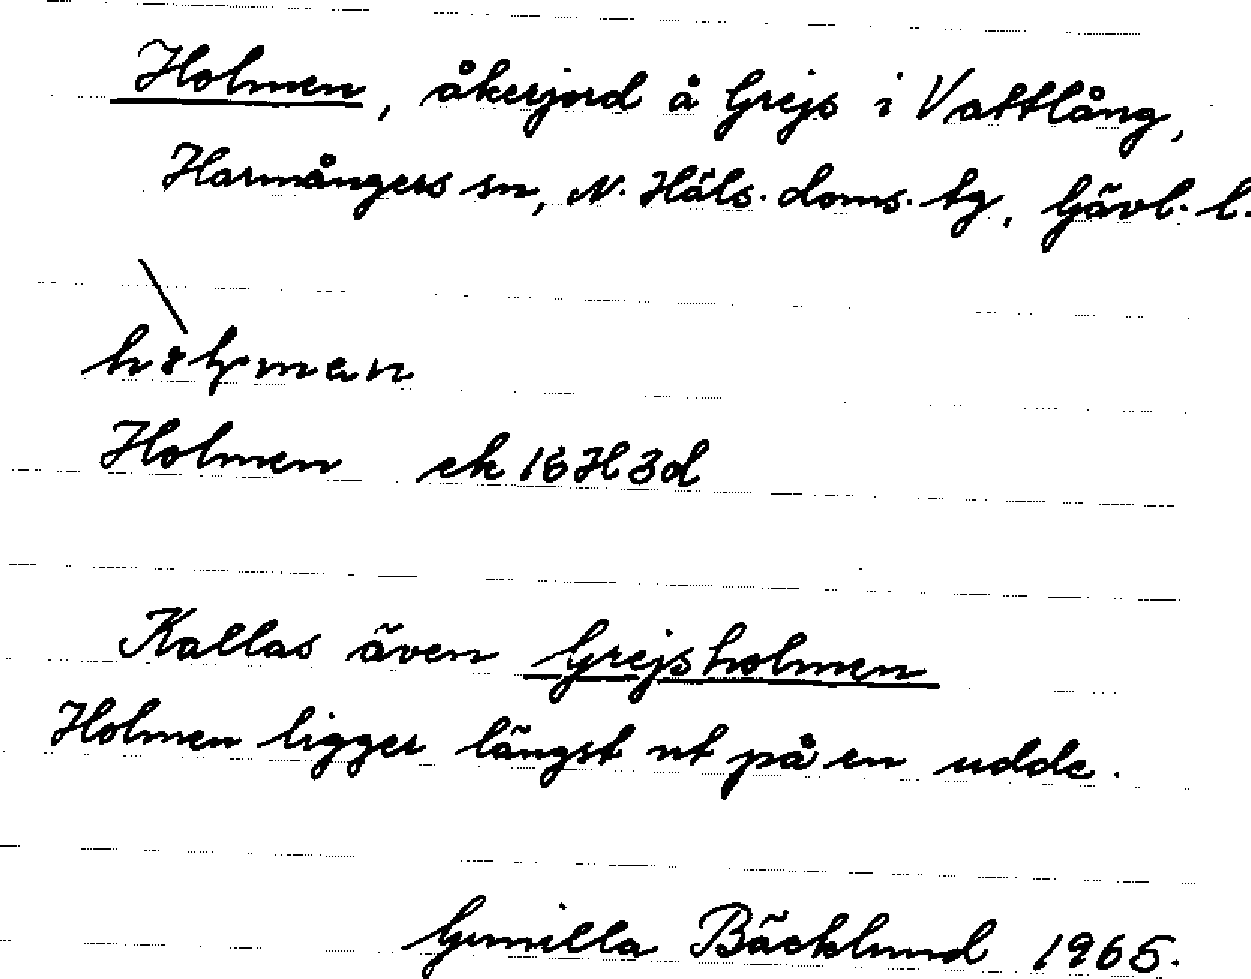 Holmen, åkerjord å Grejs i Vattlång,
Harmångers sn, N. Häls. doms. tg, Gävl. l.
Holmen ek 16H3d
Kallas även Grejsholmen
Holmen ligger längst ut på en udde.
Gunilla Bäcklund 1965.